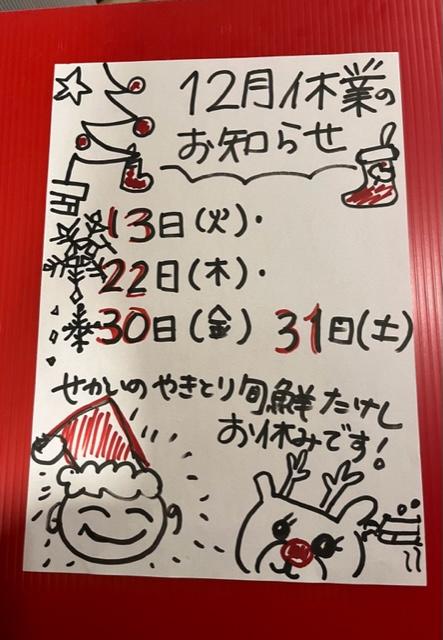 12月休業の
お知らせ
13日(火)・
22日(木)・
30日(金) 31日(土)
せかいのやきとり旬鮮たけし
お休みです!